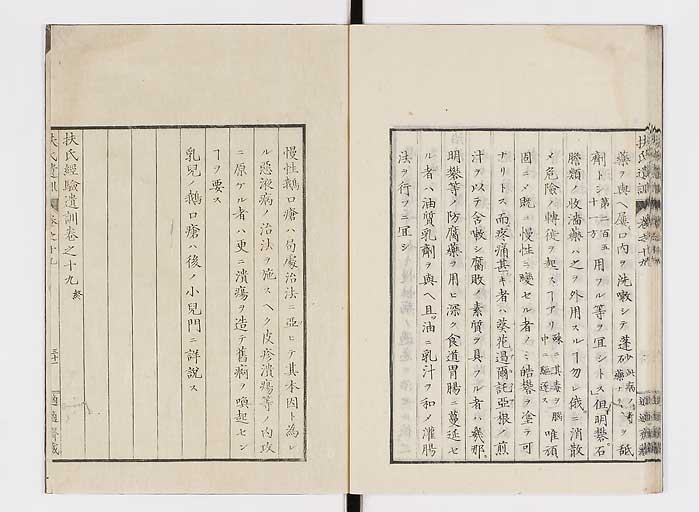 扶氏遺訓 巻之十九
藥ヲ與ヘ屢口内ヲ洗嗽シテ蓬砂此病ノ奇藥ナリヲ舐
劑トシ第二百五十一方用フル等ヲ宜シトス但明礬石
膽類ノ收濇藥ハ之ヲ外用スルヿ勿レ俄ニ消散
メ危險ノ轉徙ヲ起スヿアリ殊ニ其毒ヲ腦中ニ驅逐ス唯頑
固ニメ既ニ慢性ニ變セル者ノミ皓礬ヲ塗テ可
ナリトス而疼痛甚キ者ハ葵花過爾託亞根ノ煎
汁ヲ以テ含嗽シ腐敗ノ素質ヲ具フル者ハ幾那
明礬等ノ防腐藥ヲ用ヒ深ク食道胃腸ニ蔓延セ
ル者ハ油質乳劑ヲ與ヘ且油ニ乳汁ヲ和メ灌腸
法ヲ行フニ宜シ
慢性鵝口瘡ハ局處治法ニ亞ヒテ其本因ト為レ
ル惡液病ノ治法ヲ施スヘク皮疹潰瘍等ノ内攻
ニ原ケル者ハ更ニ潰瘍ヲ造テ舊痾ヲ喚起セン
ヿヲ要ス
乳兒ノ鵝口瘡ハ後ノ小兒門ニ詳說ス
扶氏經驗遺訓巻之十九 終
扶氏遺訓 巻之十九
適適齋藏